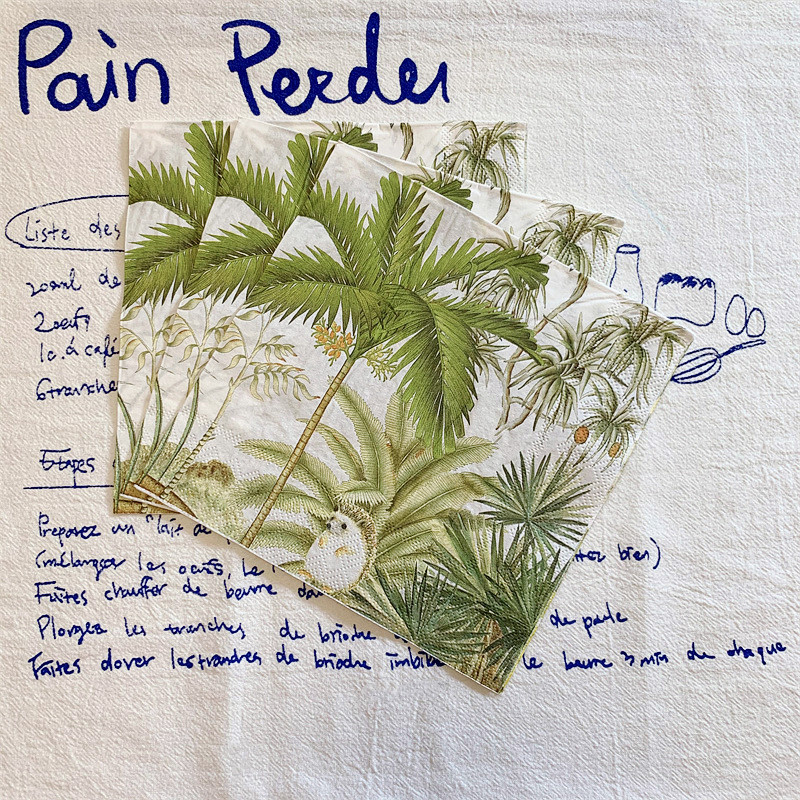 Pain Perdu
Liste des
200ml de
2 oeufs
1 c. à café
6 tranche
Etapes
Preparez un "lait de
(mélanger les oeufs, Le tez bien)
Faites chauffer de beurre da
Plongez les tranches de brioche de paile
Faites dorer les tranches de brioche imbibé le beurre 3 min de chaque